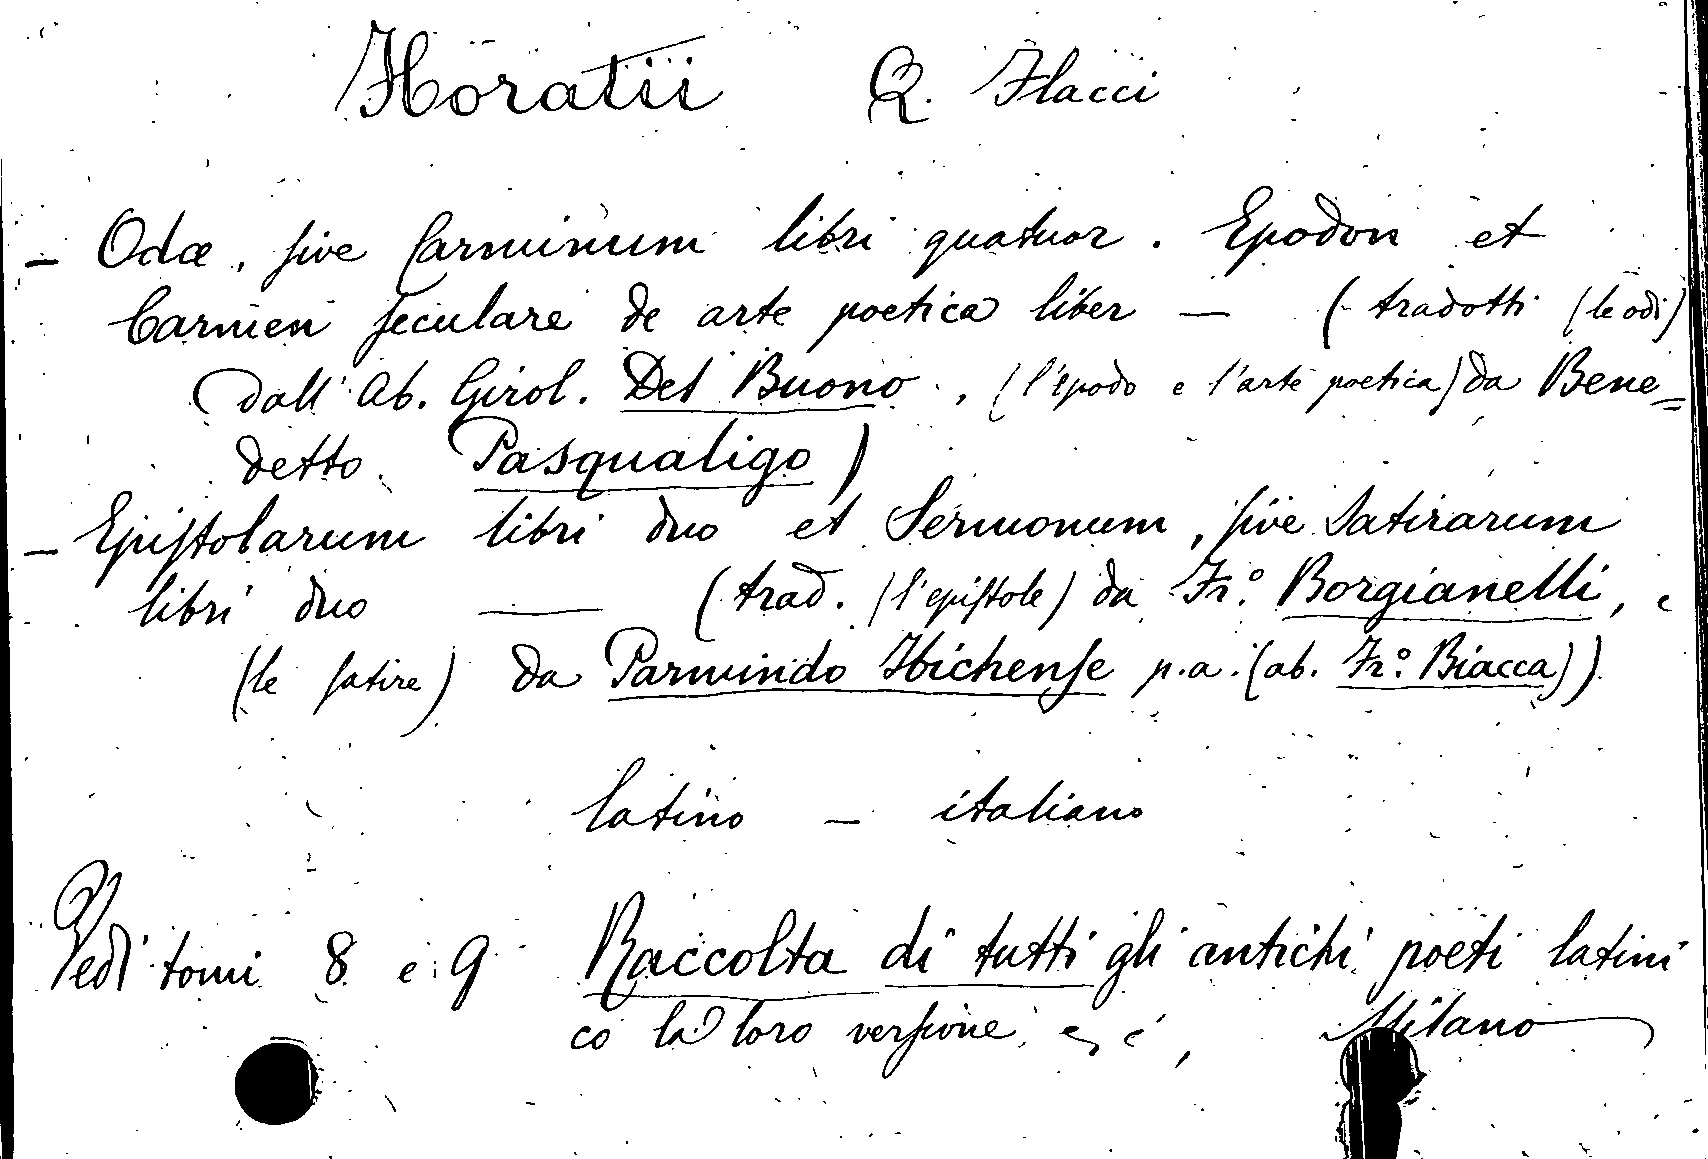 Horatii Q. Flacci
- Odæ, sive Carminum libri quatuor. Epodon et
Carmen seculare de arte poetica liber — (tradotti (le odi)
dall' Ab. Girol. Del Buono, (l'epodo e l'arte poetica) da Bene=
detto Pasqualigo)
- Epistolarum libri duo et Sermonum, sive Satirarum
libri duo — (trad. (l'epistole) da Fr.º Borgianelli, e
(le satire) da Parmindo Ibichense p.a. (ab. Fr.º Biacca)).
latino - italiano
Vedi tomi 8 e 9 Raccolta di tutti gli antichi poeti latini
co la loro versione, Milano